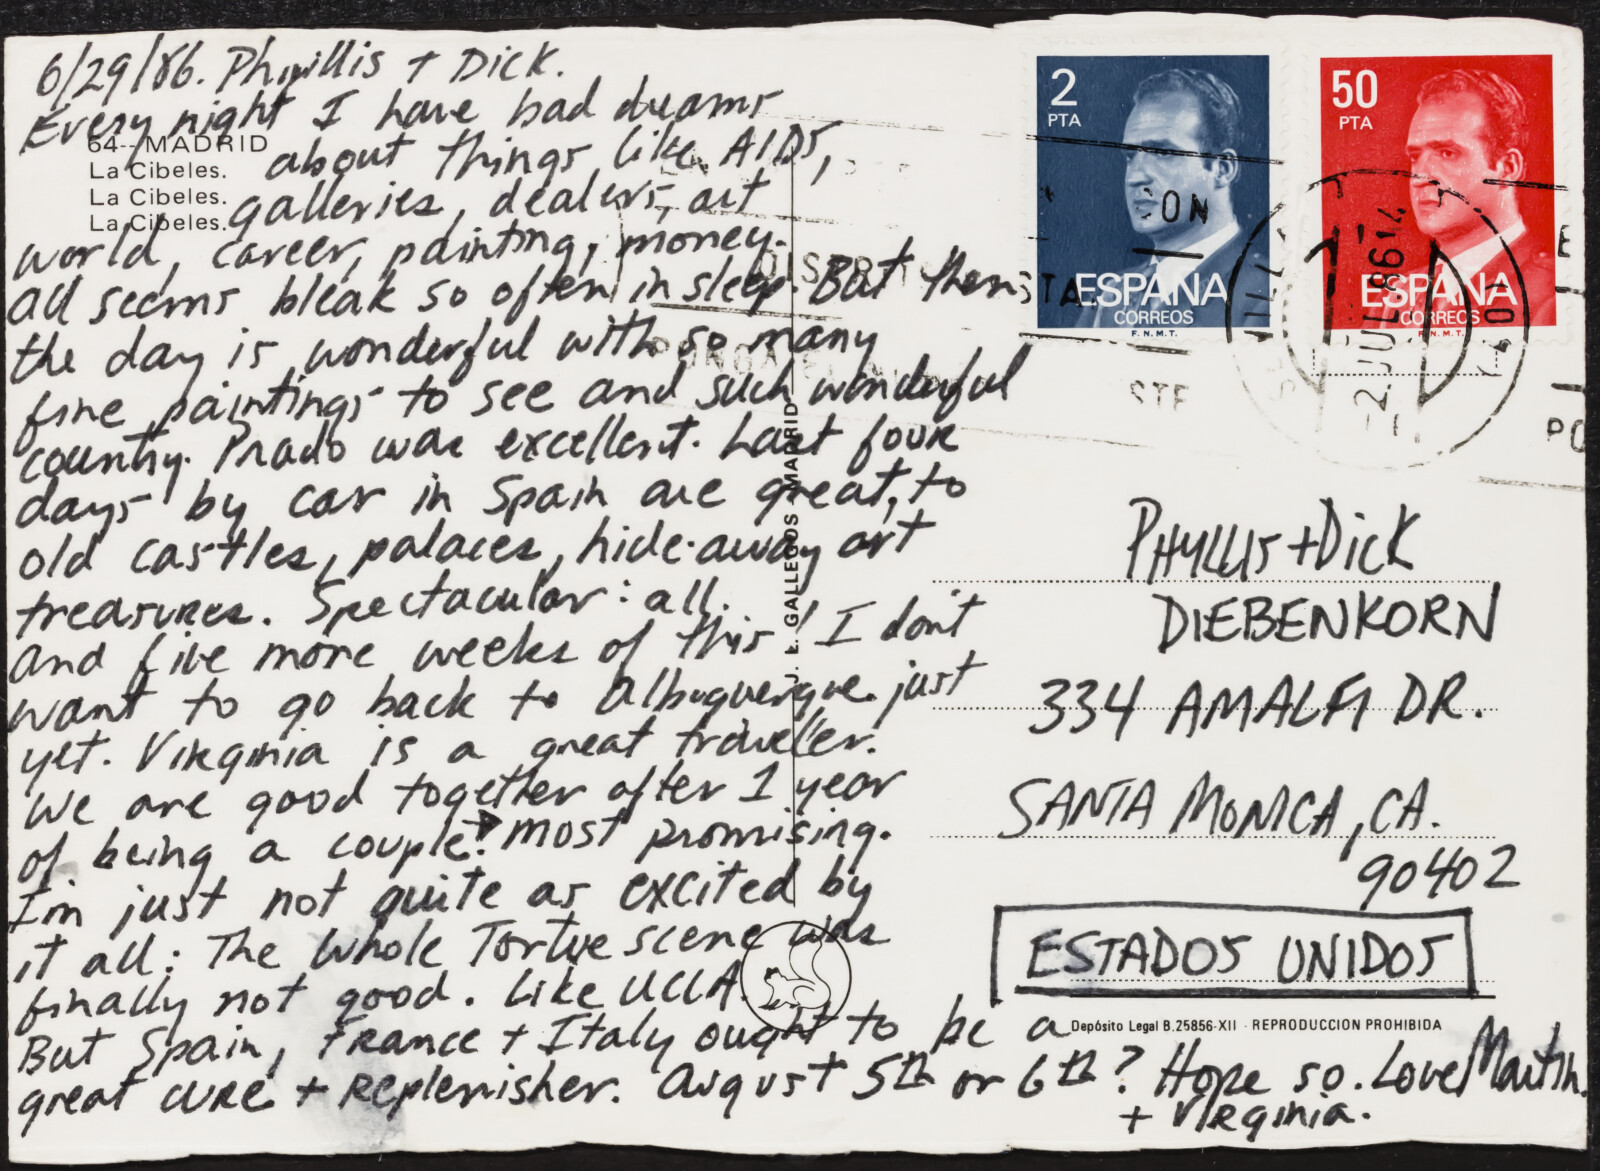 6/29/86. Phyillis + Dick.
Every night I have bad dreams
about things like AIDS,
galleries, dealers, art
world, career, painting, money.
all seems bleak so often in sleep. But then
the day is wonderful with so many
fine paintings to see and such wonderful
country. Prado was excellent. Last four
days by car in Spain are great, to
old castles, palaces, hide-away art
treasures. Spectacular: all.
and five more weeks of this! I don't
want to go back to Albuquerque just
yet. Virginia is a great traveller.
We are good together after 1 year
of being a couple. Most promising.
I'm just not quite as excited by
it all: The whole Tortue scene was
finally not good. Like UCLA.
But Spain, France + Italy ought to be a
great cure + replenisher. August 5th or 6th? Hope so. Love Martin.
+ Virginia.
64-- MADRID
La Cibeles.
La Cibeles.
La Cibeles.
J. E. GALLEGOS - MADRID
2
PTA
ESPAÑA
CORREOS
F.N.M.T.
50
PTA
ESPAÑA
CORREOS
F.N.M.T.
-2 JUL 86 14
PHYLLIS + DICK
DIEBENKORN
334 AMALFI DR.
SANTA MONICA, CA.
90402
ESTADOS UNIDOS
Depósito Legal B.25856-XII - REPRODUCCION PROHIBIDA